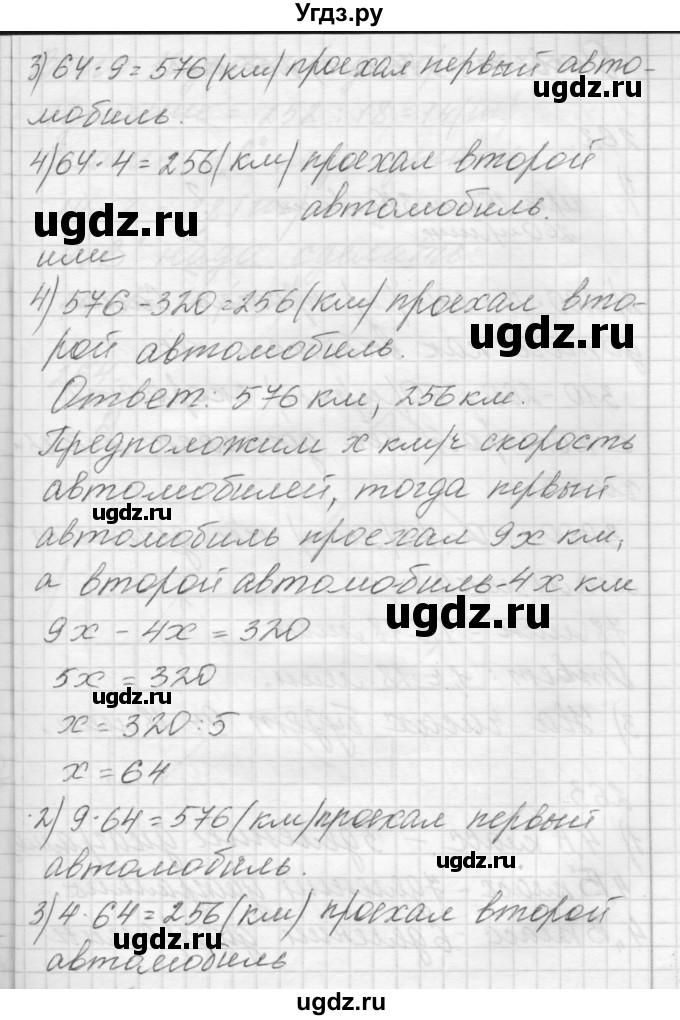 Угдз.ру
3) 64·9=576 (км) проехал первый авто-
ugdz.ru
мобиль.
4) 64·4=256 (км) проехал второй
автомобиль.
ugdz.ru
или
4) 576-320=256 (км) проехал вто-
ugdz.ru
рой автомобиль.
Ответ: 576 км, 256 км.
Предположим x км/ч скорость
автомобилей, тогда первый
ugdz.ru
автомобиль проехал 9x км,
а второй автомобиль-4x км
ugdz.ru
9x - 4x = 320
5x = 320
ugdz.ru
x = 320:5
x = 64
2) 9·64=576 (км) проехал первый
автомобиль.
ugdz.ru
3) 4·64=256 (км) проехал второй
ugdz.ru
автомобиль
ugdz.ru